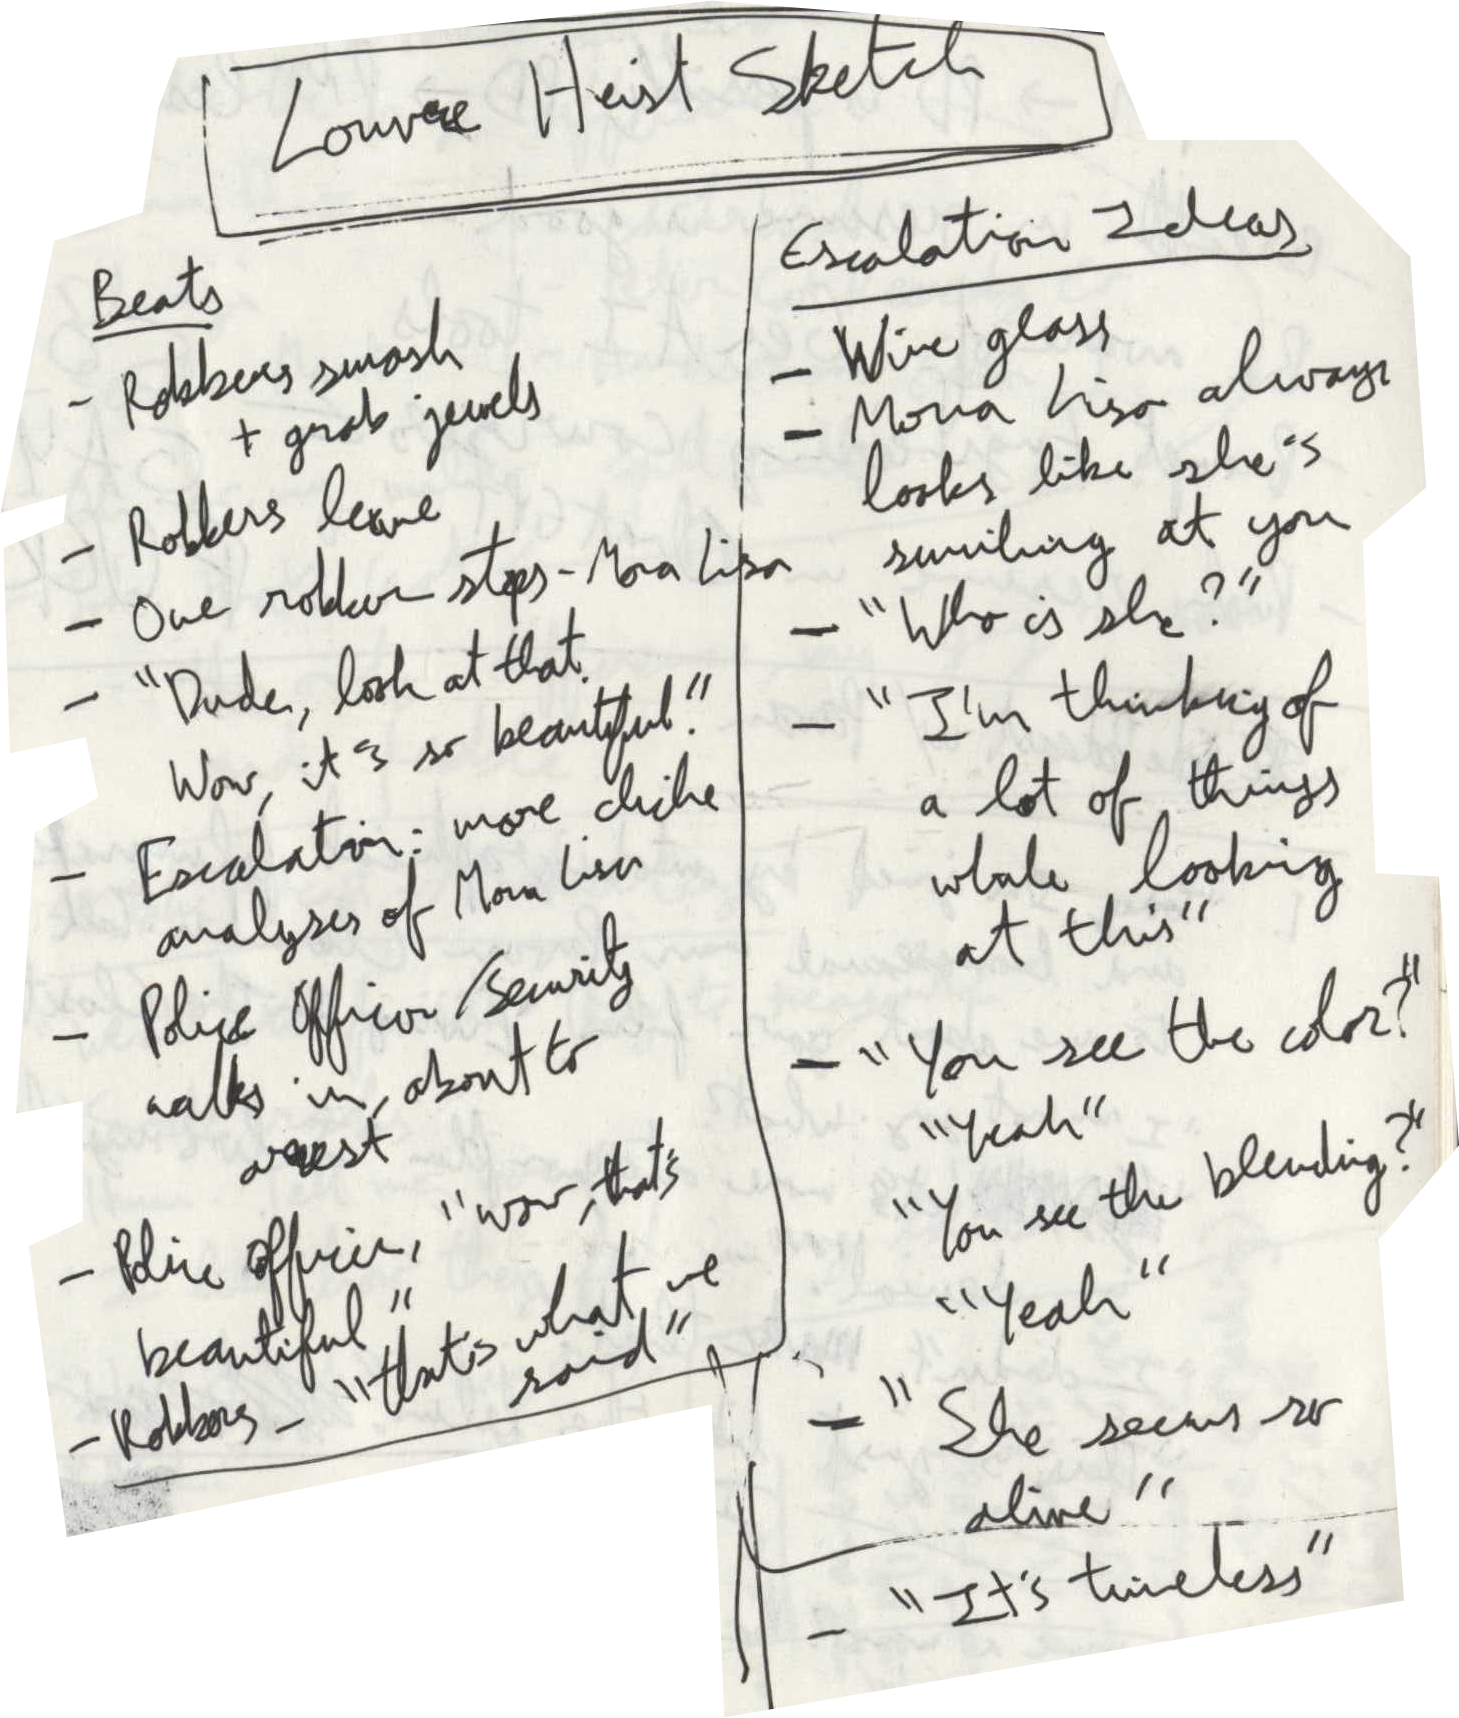 Louvre Heist Sketch
Beats
- Robbers smash
+ grab jewels
- Robbers leave
- One robber stops - Mona Lisa
- "Dude, look at that.
Wow, it's so beautiful."
- Escalation: more cliche
analyses of Mona Lisa
- Police Officer/Security
walks in, about to
arrest
- Police officer, "wow, that's
beautiful"
- Robbers - "that's what we
said"
Escalation Ideas
- Wine glass
- Mona Lisa always
looks like she's
smiling at you
- "Who is she?"
- "I'm thinking of
a lot of things
while looking
at this"
- "You see the color?"
"Yeah"
"You see the blending?"
"Yeah"
- "She seems so
alive"
- "It's timeless"